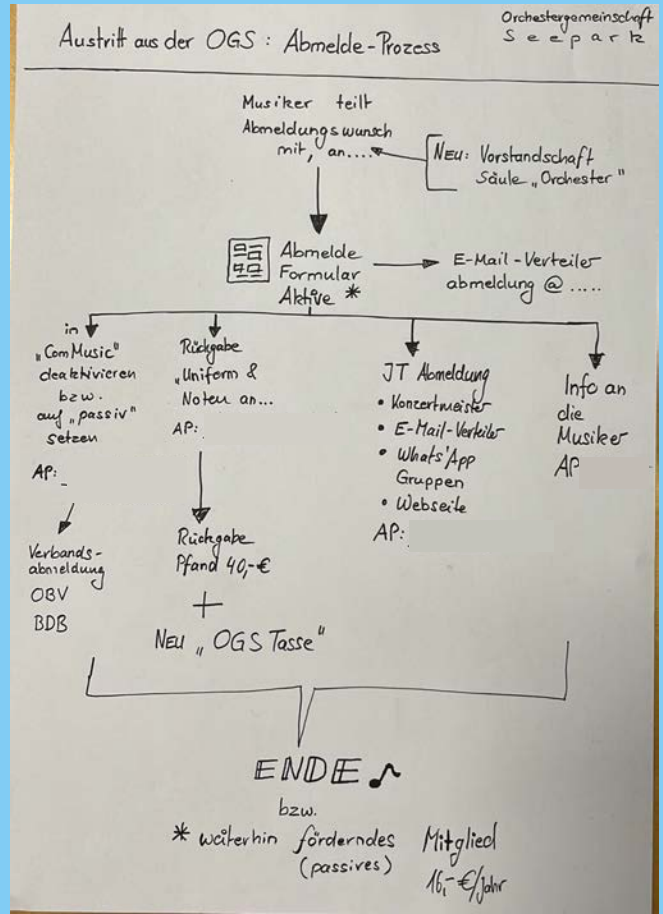 Orchestergemeinschaft
Seepark
Austritt aus der OGS: Abmelde-Prozess
Musiker teilt
Abmeldungswunsch
mit, an....
NEU: Vorstandschaft
Säule „Orchester"
Abmelde
Formular
Aktive *
E-Mail-Verteiler
abmeldung @ .....
in
„ComMusic"
deaktivieren
bzw.
auf „passiv"
setzen
AP:
Verbands-
abmeldung
OBV
BDB
Rückgabe
„Uniform &
Noten an...
AP:
Rückgabe
Pfand 40,-€
+
NEU „OGS Tasse"
JT Abmeldung
• Konzertmeister
• E-Mail-Verteiler
• Whats'App
Gruppen
• Webseite
AP:
Info an
die
Musiker
AP
ENDE
bzw.
* weiterhin förderndes Mitglied
(passives)
16,-€/Jahr